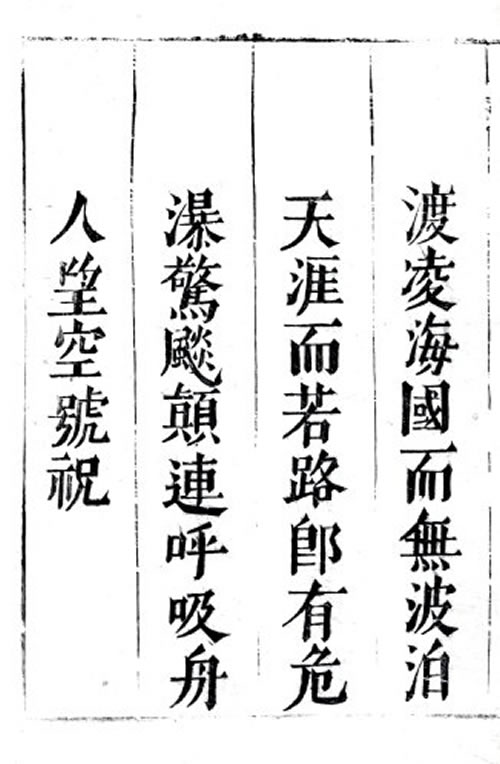 渡凌海國而無波泊
天涯而若路郎有危
瀑驚飈顛連呼吸舟
人望空號祝